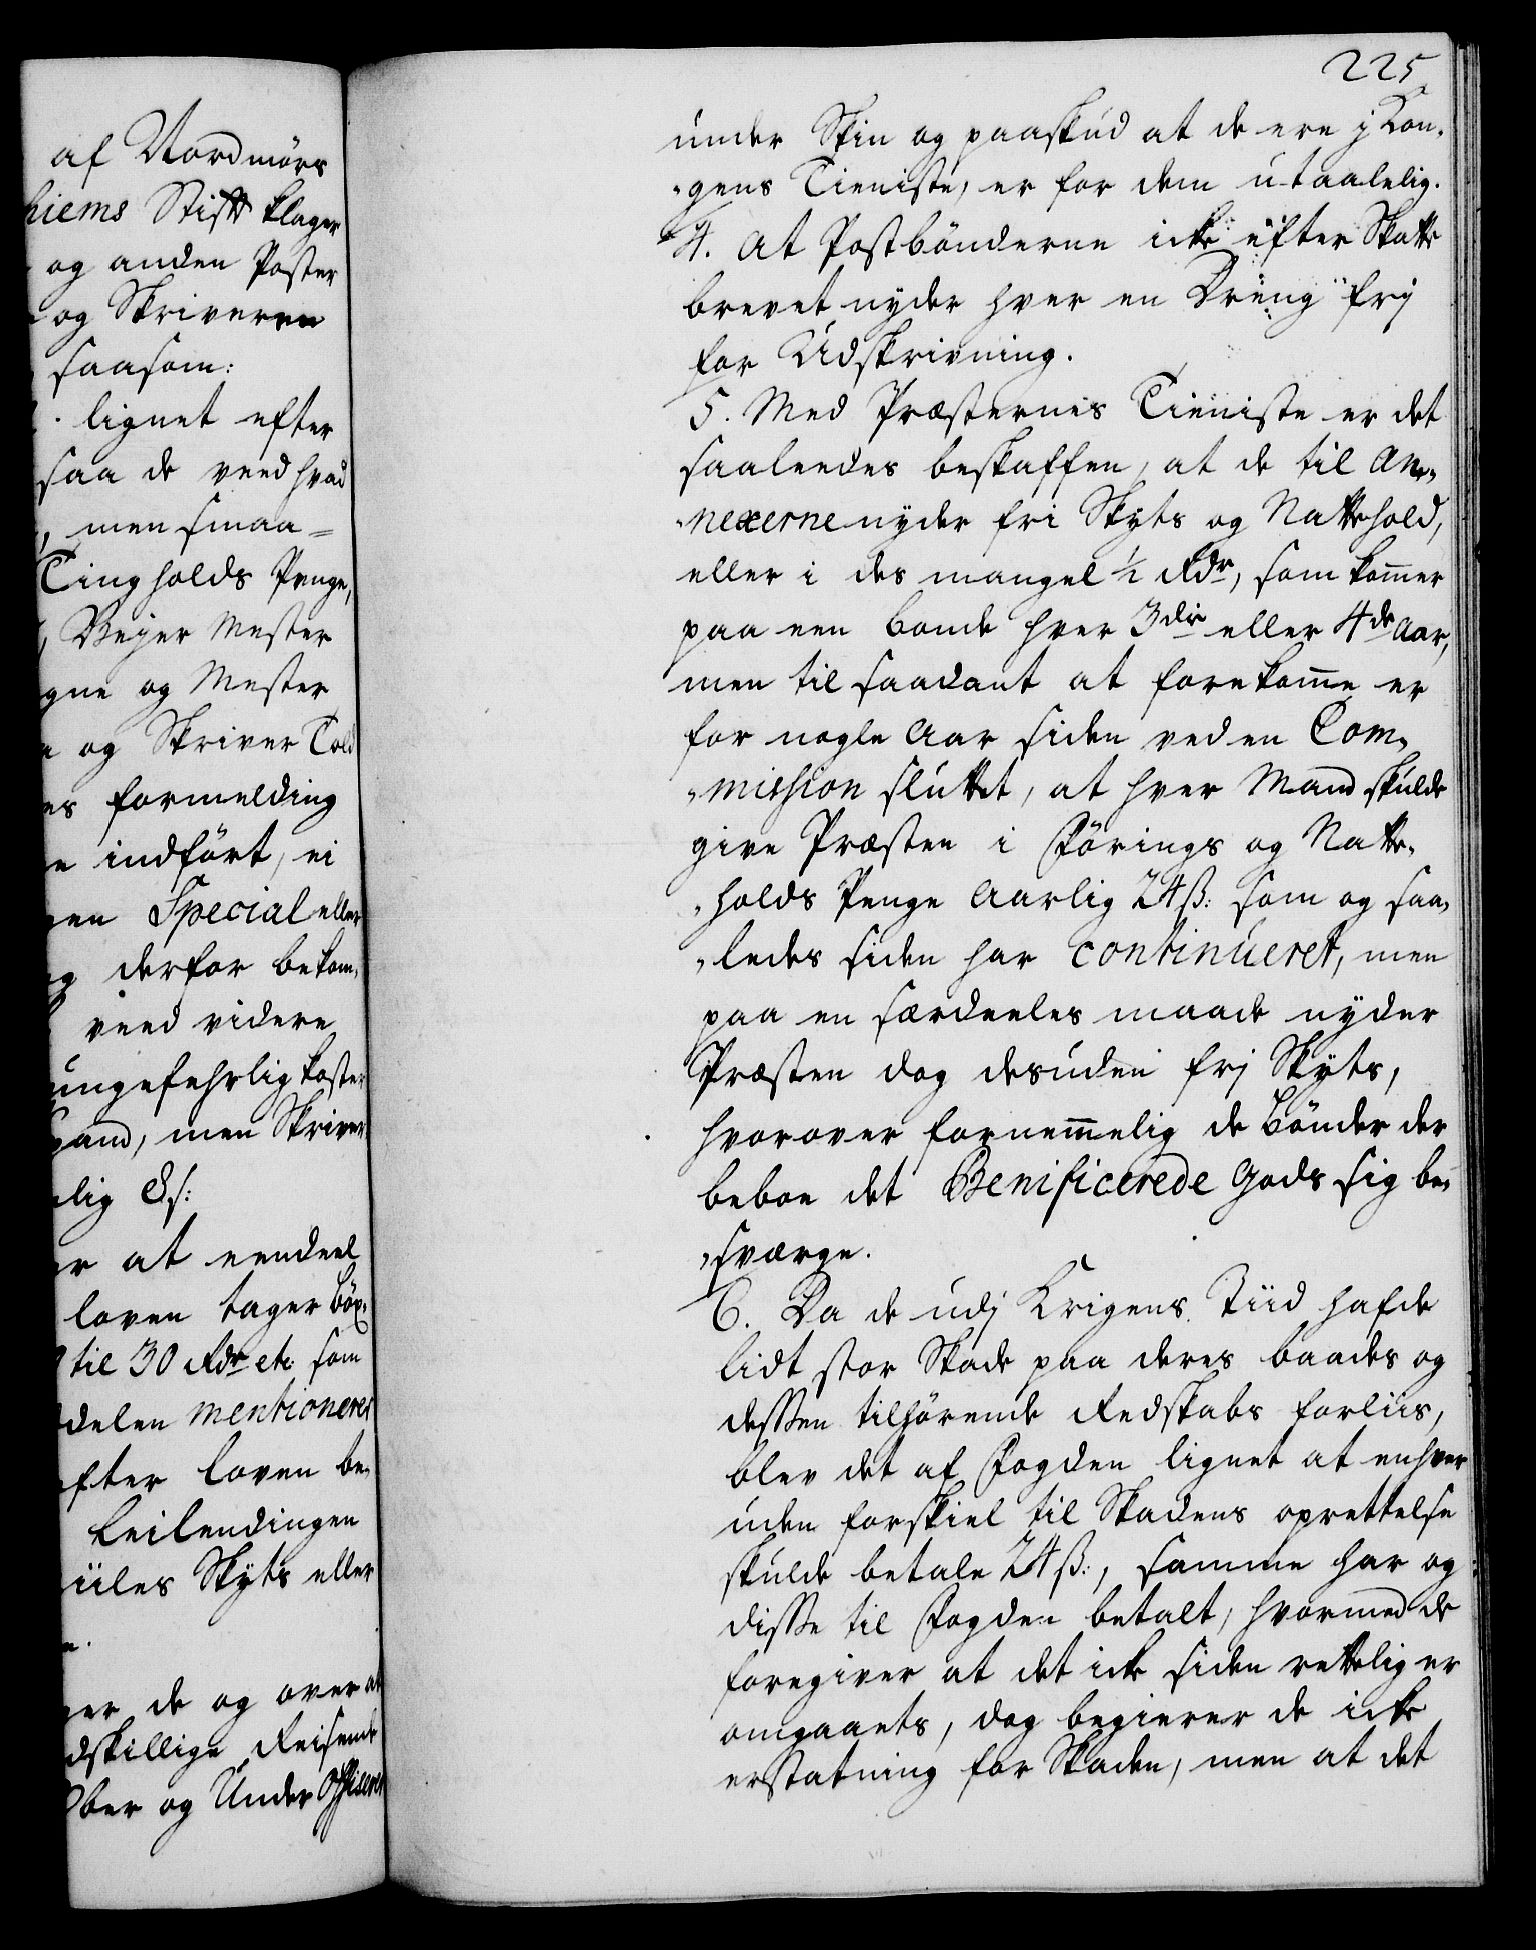 af Nordmörs
hiems Stift klager
og anden Poster
og Skriveren
saasom:
lignet efter
saa de veed hvad
men smaa=
Tingholds Penge,
Beÿer Mester
gne og Mester
og Skriver Told
es formelding
indfört, ei
en Special eller
g derfor bekom,
veed videre
ungefehrlig koster
and, men Skriver,
lig Es:
r at eendeel
loven tager böx,
til 30 Rdr etc som
delen mentioneres
fter loven be,
Leilendingen
iiles Skÿts eller
er de og over at
dskillige Reisende
Ober og Under Officerer
225
under Skin og paaskud at de ere j Kon,
„gens Tieniste, er for dem utaalelig.
4. At Postbönderne icke efter Skatte
brevet nyder hver en Dreng frj
for Udskrivning.
5. Med Præsternes Tieniste er det
saaleedes beskaffen, at de til An„
„nexerne nyder fri Skÿts og Nattehold,
eller i des mangel ½ Rdr, som kom̄er
paa een bonde hver 3die eller 4de Aar,
men til saadant at forekom̄e er
for nogle Aar siden ved en Com„
„mission sluttet, at hver Mand skulde
give Præsten i Förings og Natte„
„holds Penge Aarlig 24 ß: som og saa„
„ledes siden har continueret, men
paa en særdeeles maade nyder
Præsten dog desuden frj Skÿts,
hvorover fornem̄elig de bönder der
beboe det Benificerede Gods sig be„
„sværge.
6. Da de udj Krigens Tiid hafde
lidt stor Skade paa deres baades og
dessen tilhörende Redskabs forliis,
blev det af Fogden lignet at enhver
uden forskiel til Skadens oprettelse
skulde betale 24 ß:, samme har og
disse til Fogden betalt, hvormed de
foregiver at det icke siden rettelig er
omgaaets, dog begierer de icke
erstatning for Skaden, men at det